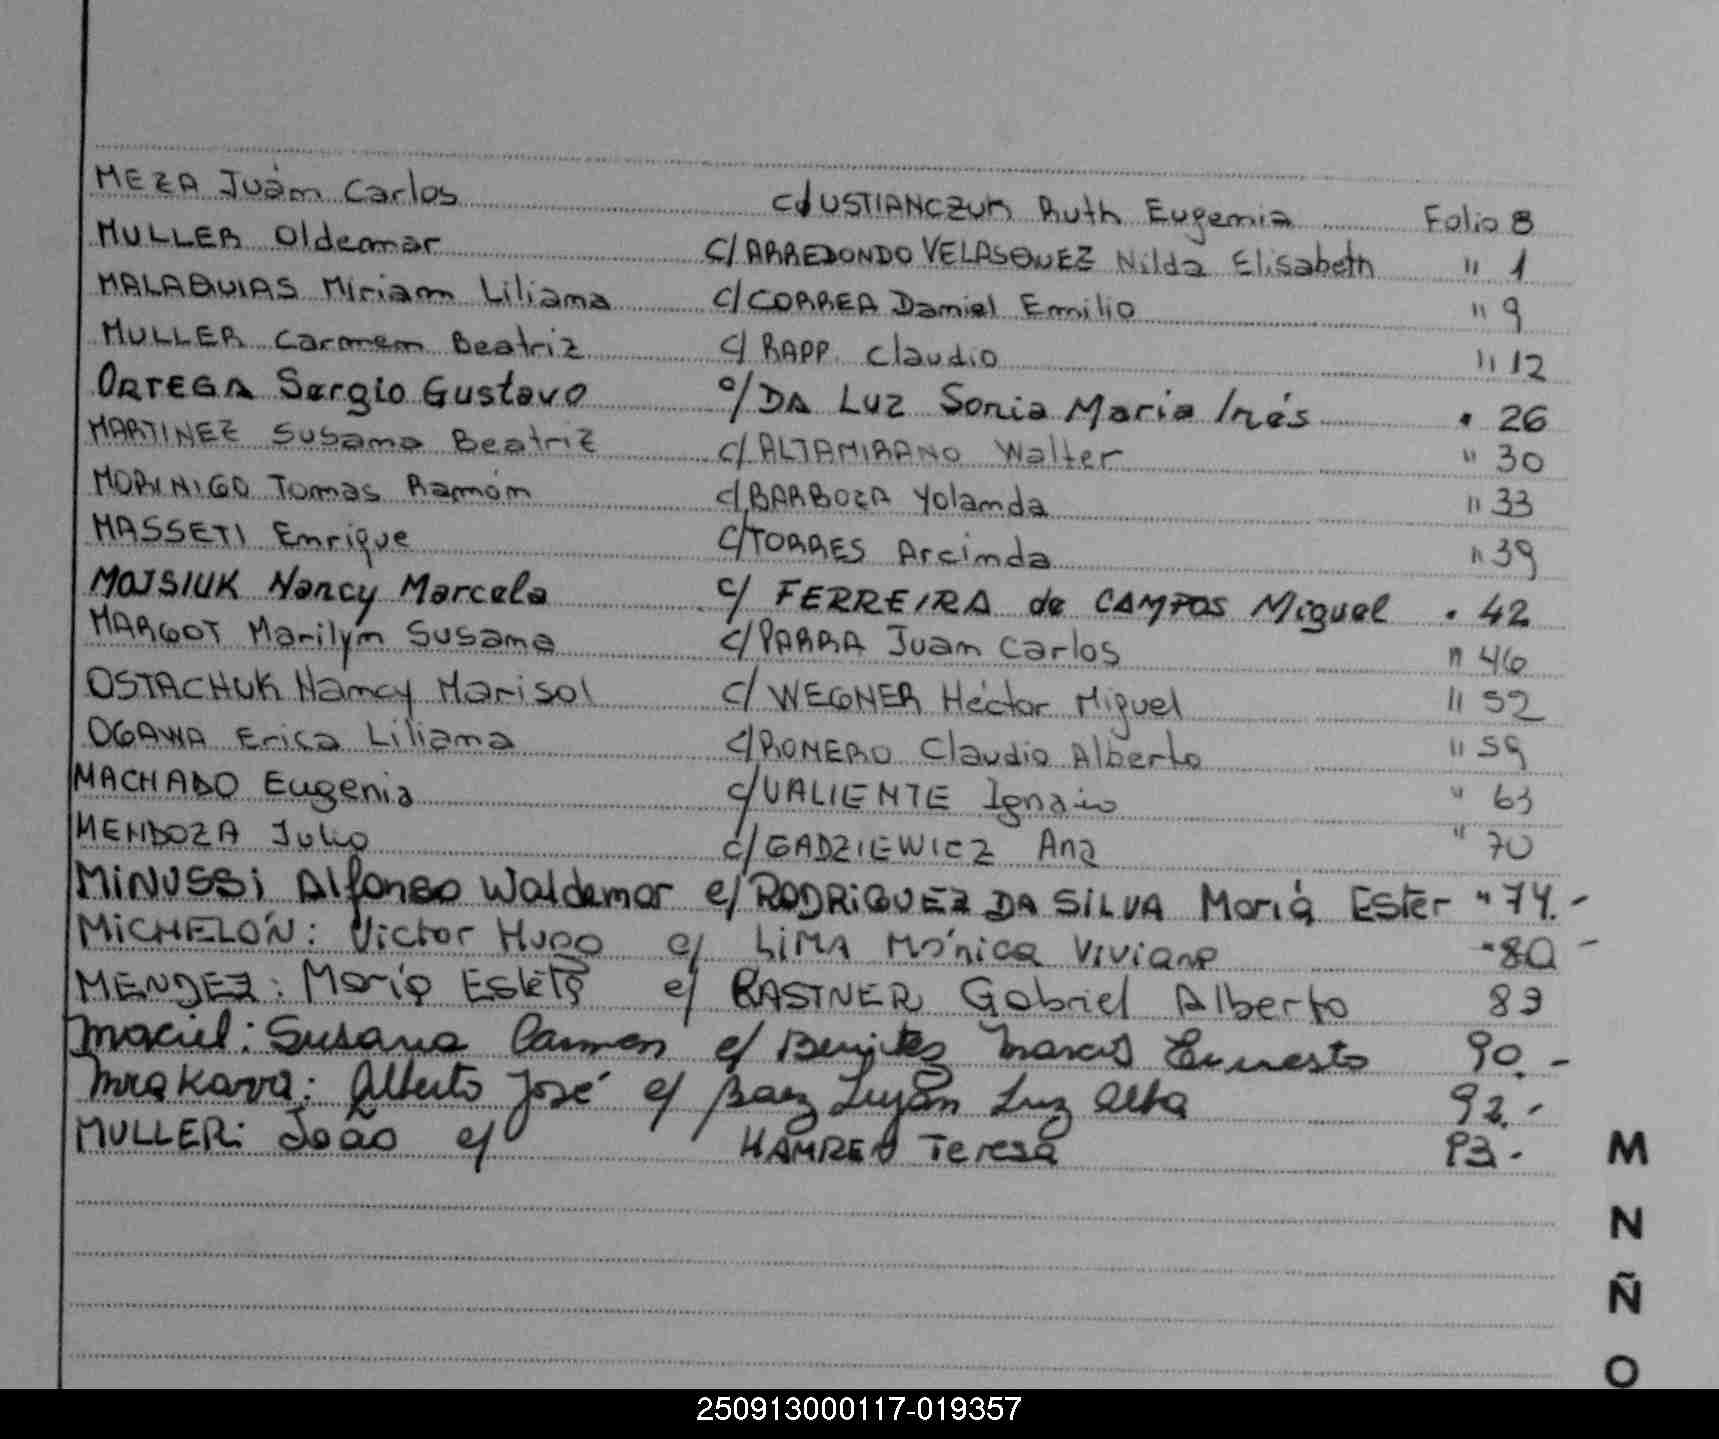 MEZA Juan Carlos c/ USTIANCZUK Ruth Eugenia Folio 8
MULLER Oldemar c/ ARREDONDO VELASQUEZ Nilda Elisabeth " 1
MALAQUIAS Miriam Liliana c/ CORREA Daniel Emilio " 9
MULLER Carmen Beatriz c/ RAPP. Claudio " 12
ORTEGA Sergio Gustavo c/ DA LUZ Sonia Maria Inés " 26
MARTINEZ Susana Beatriz c/ ALTAMIRANO Walter " 30
MORINIGO Tomas Ramón c/ BARBOZA Yolanda " 33
MASSETI Enrique c/ TORRES Arcinda " 39
MOJSIUK Nancy Marcela c/ FERREIRA de CAMPOS Miguel " 42
MARGOT Marilyn Susana c/ PARRA Juan Carlos " 46
OSTACHUK Nancy Marisol c/ WEGNER Héctor Miguel " 52
OGAWA Erica Liliana c/ ROMERO Claudio Alberto " 59
MACHADO Eugenia c/ VALIENTE Ignacio " 63
MENDOZA Julio c/ GADZIEWICZ Ana " 70
MINUSSI Alfonso Waldemar c/ RODRIGUEZ DA SILVA María Ester " 74.-
MICHELÓN: Victor Hugo c/ LIMA Mónica Viviana " 80 -
MENDEZ: María c/ Gabriel Alberto 83
Maciel: Susana Carmen c/ Benitez Marcos Ernesto 90.-
Alberto José c/ Baez Luján Luz Alba 92.-
MULLER: João c/ Teresa 93.-
M
N
Ñ
O
250913000117-019357